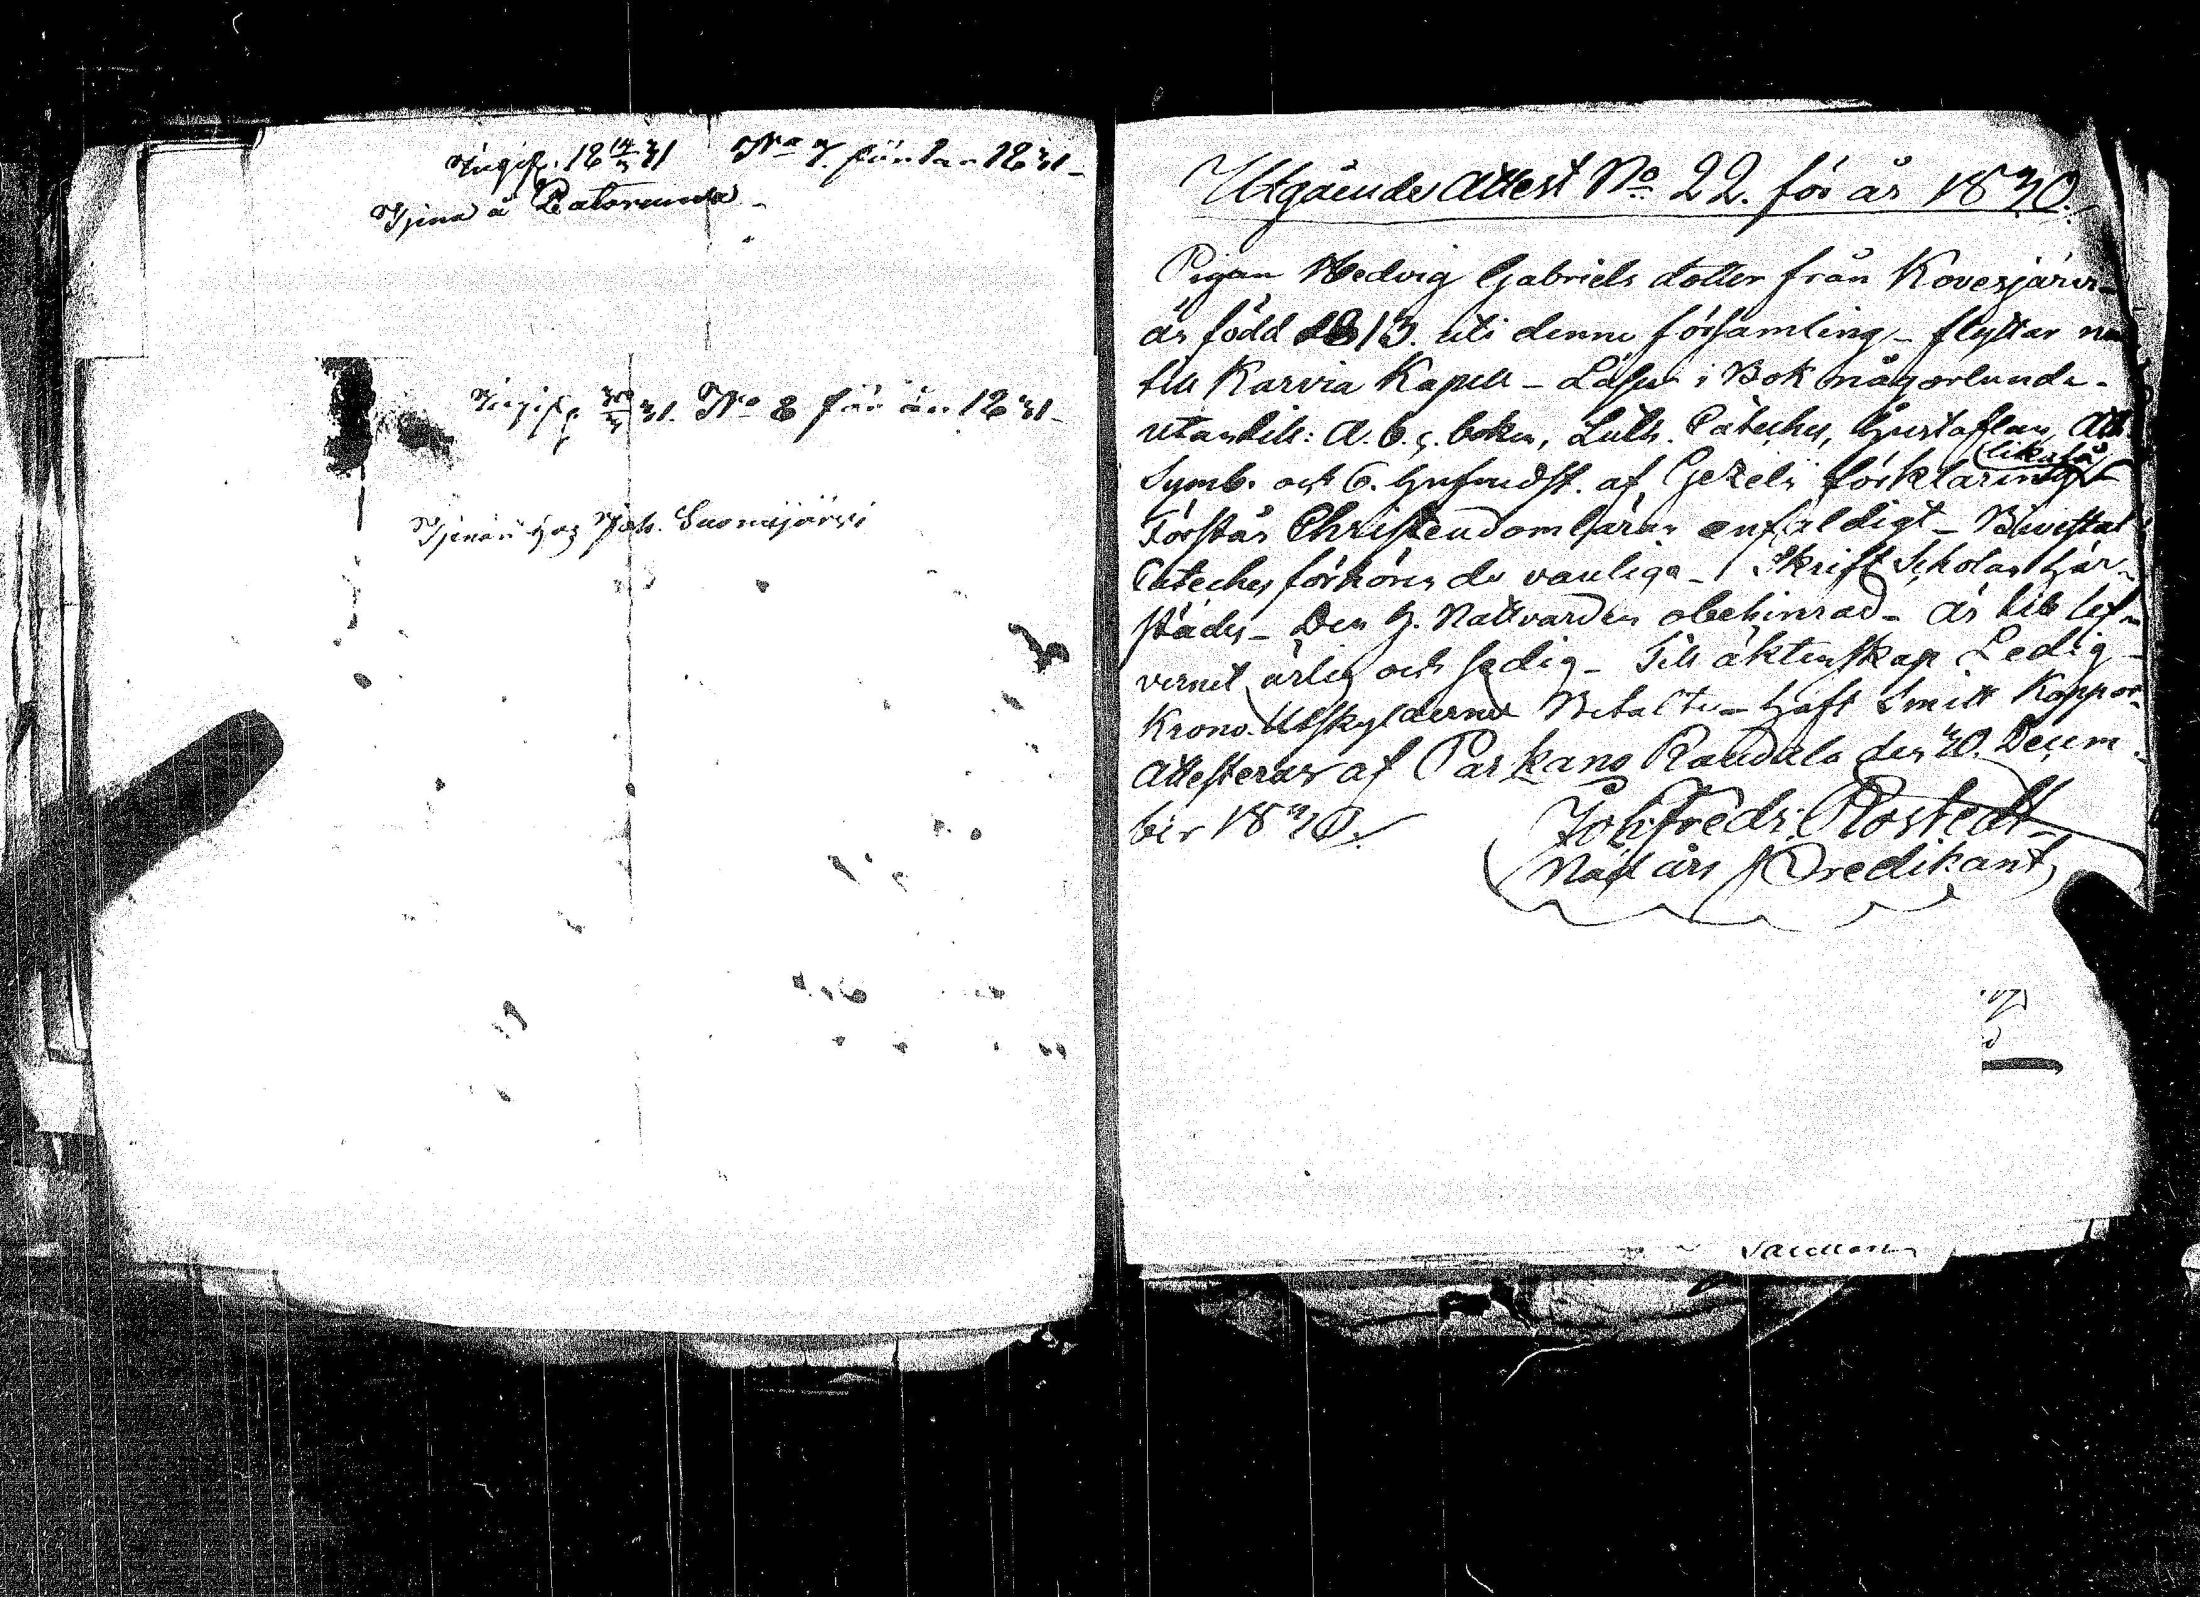 Ingif. 18 14/3 31 No 7. för år 1831 -
Tjena å Latoruma -
Ingif. 30/3 31. No 8 för år 1831 -
Tjenar hos Joh. Suomijärvi
Utgående Attest No 22. för år 1830.
Pigan Hedvig Gabriels dotter från Kovesjärvi -
är född 1813. uti denne församling - flyttar nu
till Karvia Kapell - Läser i Bok någorlunda -
utantill: A. b. c. boken, Luth. Cateches, Hustaflan, Ath.
Symb. och 6. hufvudst. af Gezelii förklaring
likaså
Förstår Christendomsläran enfaldigt - Bivistat
Catechesförhören de vanliga - Skrift Scholan här-
städes - Den H. Nattvarden obehindrad - är till lef-
vernet ärlig och sedig - Till äktenskap Ledig -
Krono Utskylderne Betalte - haft Smitt Koppor
Attesteras af Parkano Raudala den 30. Decem-
ber 1830.
Joh. Fredr. Rostedt
Nådårs Predikant